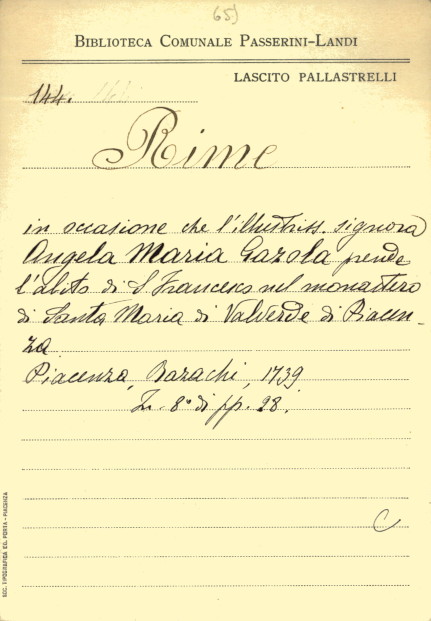 65)
BIBLIOTECA COMUNALE PASSERINI-LANDI
LASCITO PALLASTRELLI
144.
Rime
in occasione che l'illustriss. signora
Angela Maria Gazola prende
l'abito di S Francesco nel monastero
di Santa Maria di Valverde di Piacen-
za
Piacenza, Bazachi, 1739
In 8° di pp. 28.
C
SOC. TIPOGRAFICA ED. PORTA - PIACENZA